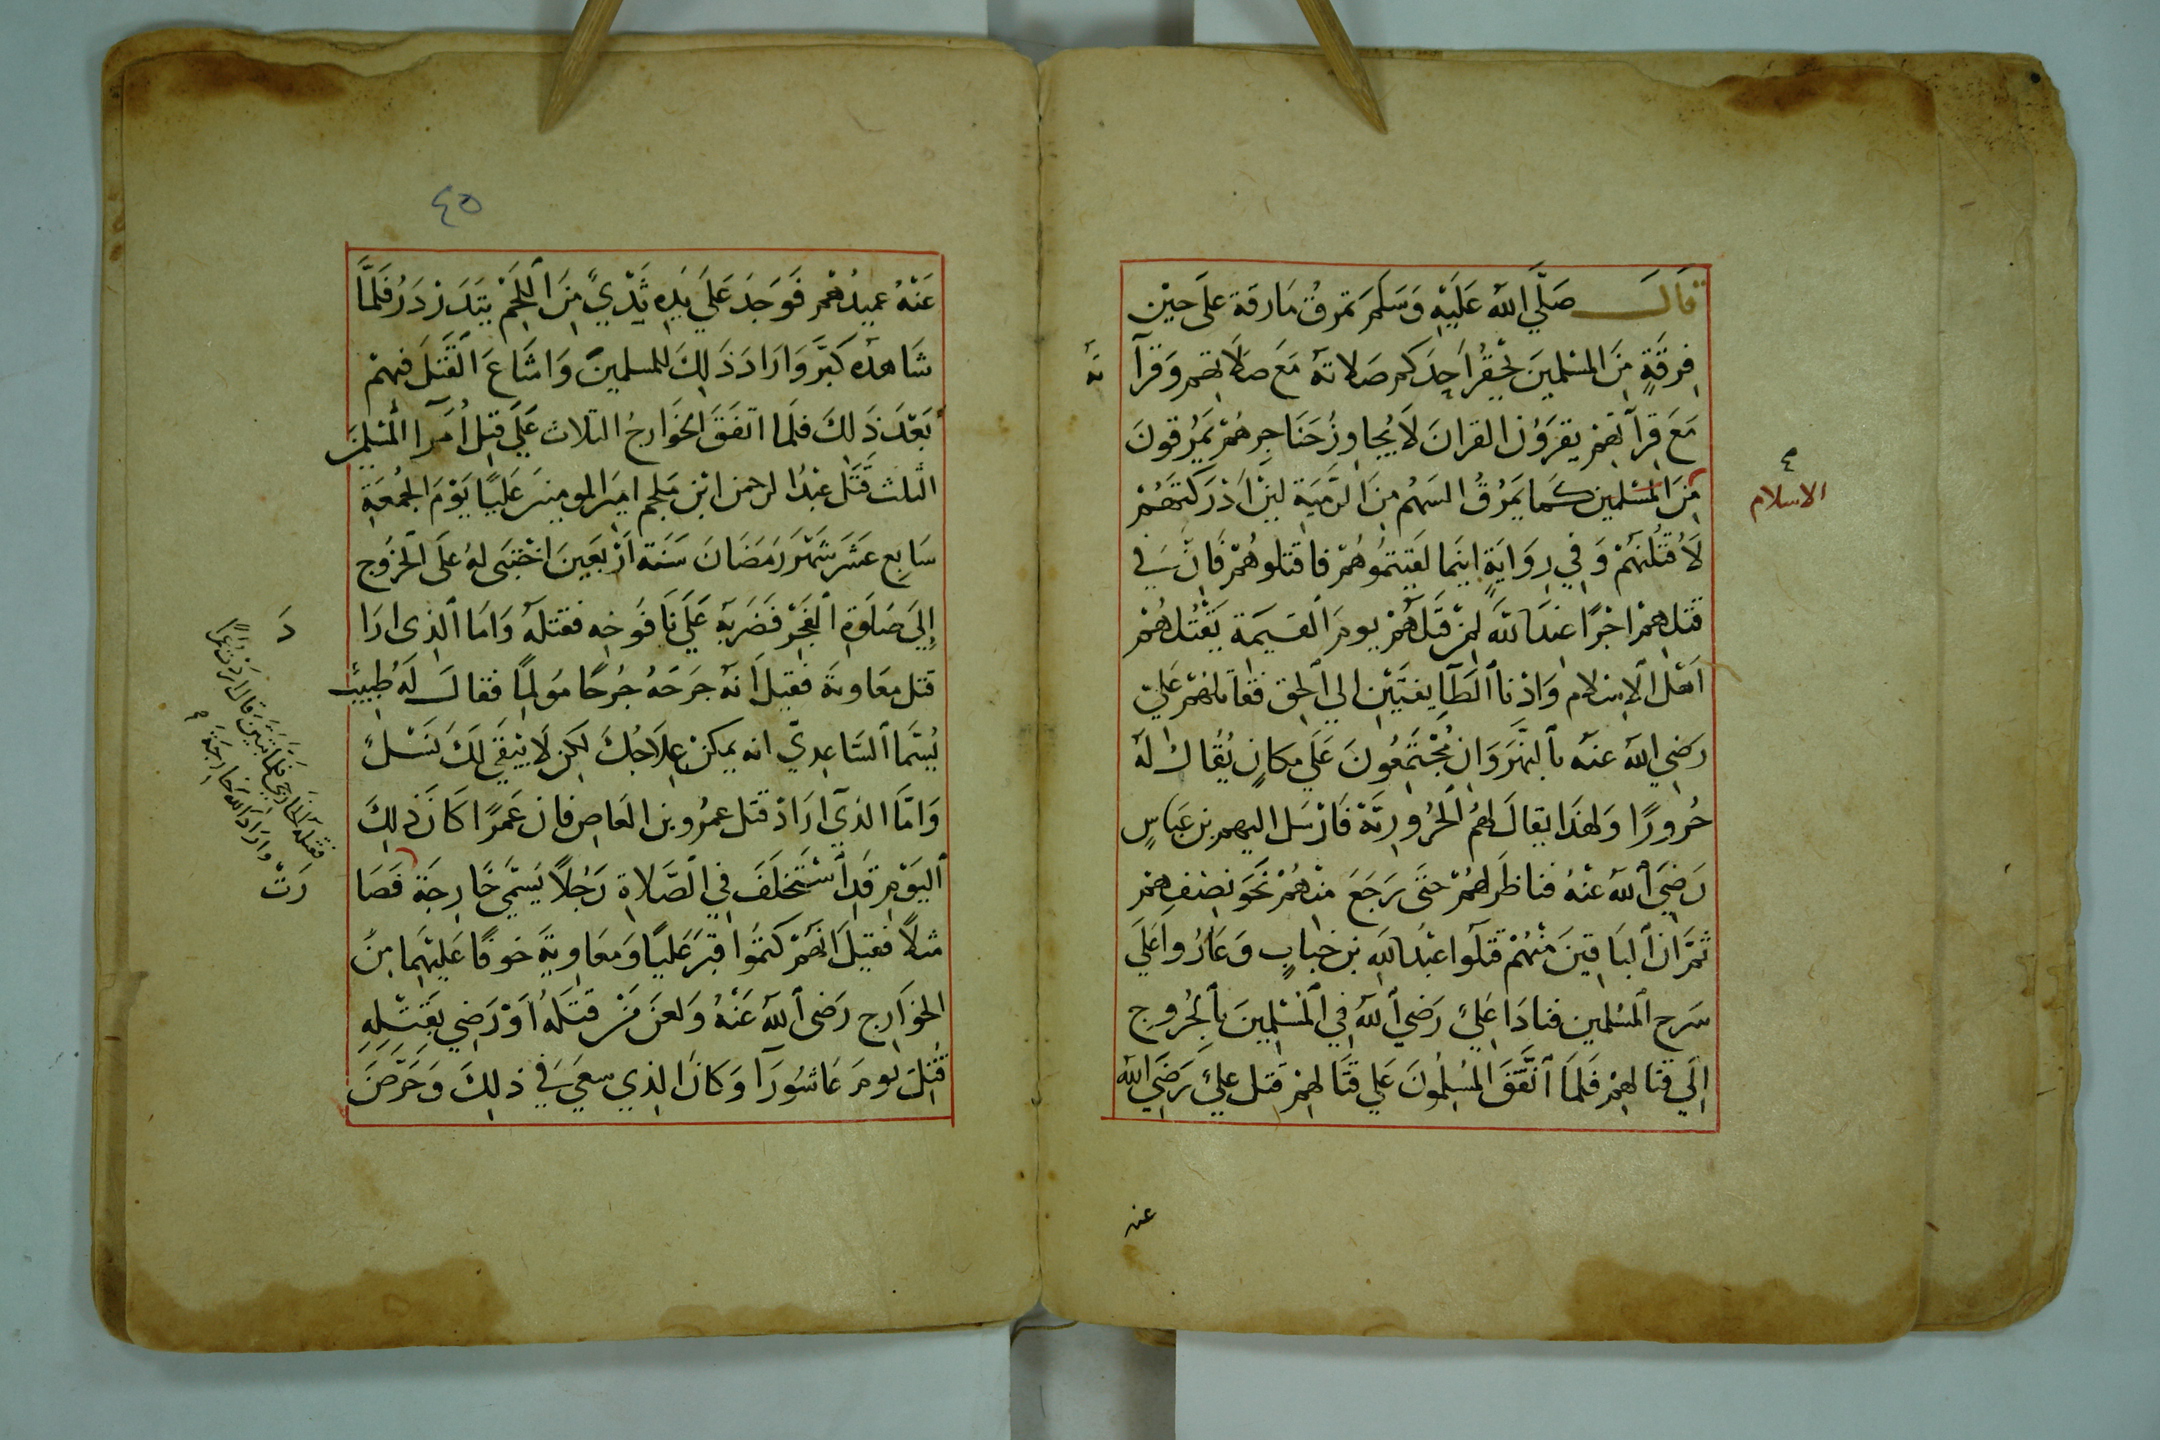 قال صَلَّي اللّه عَلَيْهِ وَسَلَّمَ تمرقُ مَارقة علَى حِيْن
فِرقَةٍ مِنَ المسْلمينَ يَحْقُر اَحِدَكم صَلاتهُ مَعَ صَلاَتِهم وَقرآ
تهُ
مَعَ قِرآتِهِمْ يقرَؤُن القرانَ لاَ يُجاوِزُ حَنَاجِرهُمْ يَمْرُقونَ
مِنَ المسْلمين كَما يَمرُقُ السَهْمُ مِنَ الرَّمِيَةِ لَئِنْ اَدْرَكتَهُمْ
الاسلام
لَاُقتُلنَهُمْ وَفِي رِوَايَةٍ اينَما لَقِيتمُوهُمْ فاقتلوهُمْ فَاِنَّ فِي
قَتْلِهِمْ اجْرًا عِندَ اللَّه لِمَنْ قَتَلَهُمْ يومَ القيمَة يَقْتُلهُمْ
اَهْل الاِسْلام وَادْنا الطَآيِفتَيْنِ الي الحق فقَاتلهُمْ عَليّ
رَضِي اللّه عنه بالنهْرَوَانِ مُجْتَمِعُونَ عَلَي مكانٍ يُقَال لَهُ
حُرورًا وَلهَذا يقالَ لهُمُ الحُرورِيَّة فَاَرْسَل اليهم بن عَباسٍ
رَضِيَ اللّهُ عنْهُ فناظَرهُمْ حتَى رَجَعَ مِنهُمْ نَحْوَ نِصْفِهِمْ
ثمَّ اِنَّ البَاقِينَ مِنْهُمْ قَتَلَوا عَبْدَ اللَّهِ بن خبابٍ وَغَارُوا عَلَي
سَرحِ المسْلمين فنادَا عَلِيّ رَضي اللّهُ فِي المسْلِمِينَ بِالخُروجِ
اِلَي قتالهِمْ فَلَمَا اتَّفَقَ المسْلِمُونَ عَلي قتَالهِمْ قتل عليّ رَضَي اللّه
عنه
٤٥
عَنْهُ عميدُهُمْ فَوَجدَ عَلَي يَدِهِ ثَدْيً مِنَ اللحْمِ يتَدَرْدَرُ فَلَمَّا
شَاهَدهُ كَبَّر وَارَادَ ذَلِكَ للمسلمينَ وَاشَاعَ القَتْلَ فيهِمْ
بَعْدَ ذَلِكَ فلَما اتفَقَ الخَوَارجُ الثلاث عَلَي قتِل اُمَرآ المسْلِمِنَ
الثلث قَتَل عَبْدُ الرحمن ابْن مَلجم اميَر المومِنينَ عَليًّا يَوْمَ الجُمعَةِ
سَابِع عَشَر شَهْرَ رَمَضَانَ سَنَة اَرْبَعِينَ اخْتبَى لهُ علَى الخُروجِ
إِلَى صَلَوةِ الفجْرِ فضَرَبَهُ عَلَي نَافوَخِهِ فقتلهُ وَامَا الذِى ارَا
دَ
قتل معَاويَة فَقيلَ انهُ جَرَحَهُ جُرحًا مُولمًا فقالَ لَهُ طبيبٌ
يُسَمَّا السَاعِدِيّ انه يمكنْ عِلاَجُكَ لكِن لَا يَبْقي لَكَ نَسْلٌ
وَامَّا الذِيَ ارَادْ قتْل عَمرُو بن العَاصِ فان عَمرًا كَانَ ذلِكَ
اليَوْمِ قَدِ اسْتَخلَفَ فِي الصَّلاةِ رَجُلاً يُسَمَّي خَارِجَة فَصَا
رَتْ
مثلاً فقيلَ اِنهُمْ كتمُوا قبَر عَليًا وَمعَاوِيةَ خوفًا عَليْهِمَا مِنَ
الخوَارِج رَضى اللّهُ عَنْهُ وَلعَنَ مَنْ قتَلَهُ اَوْ رَضِي بِقَتْلِهِ
قُتِلَ يومَ عَاشُورَا وَكانَ الذِي سعَي فِي ذلِكَ وَحَرَّضَ